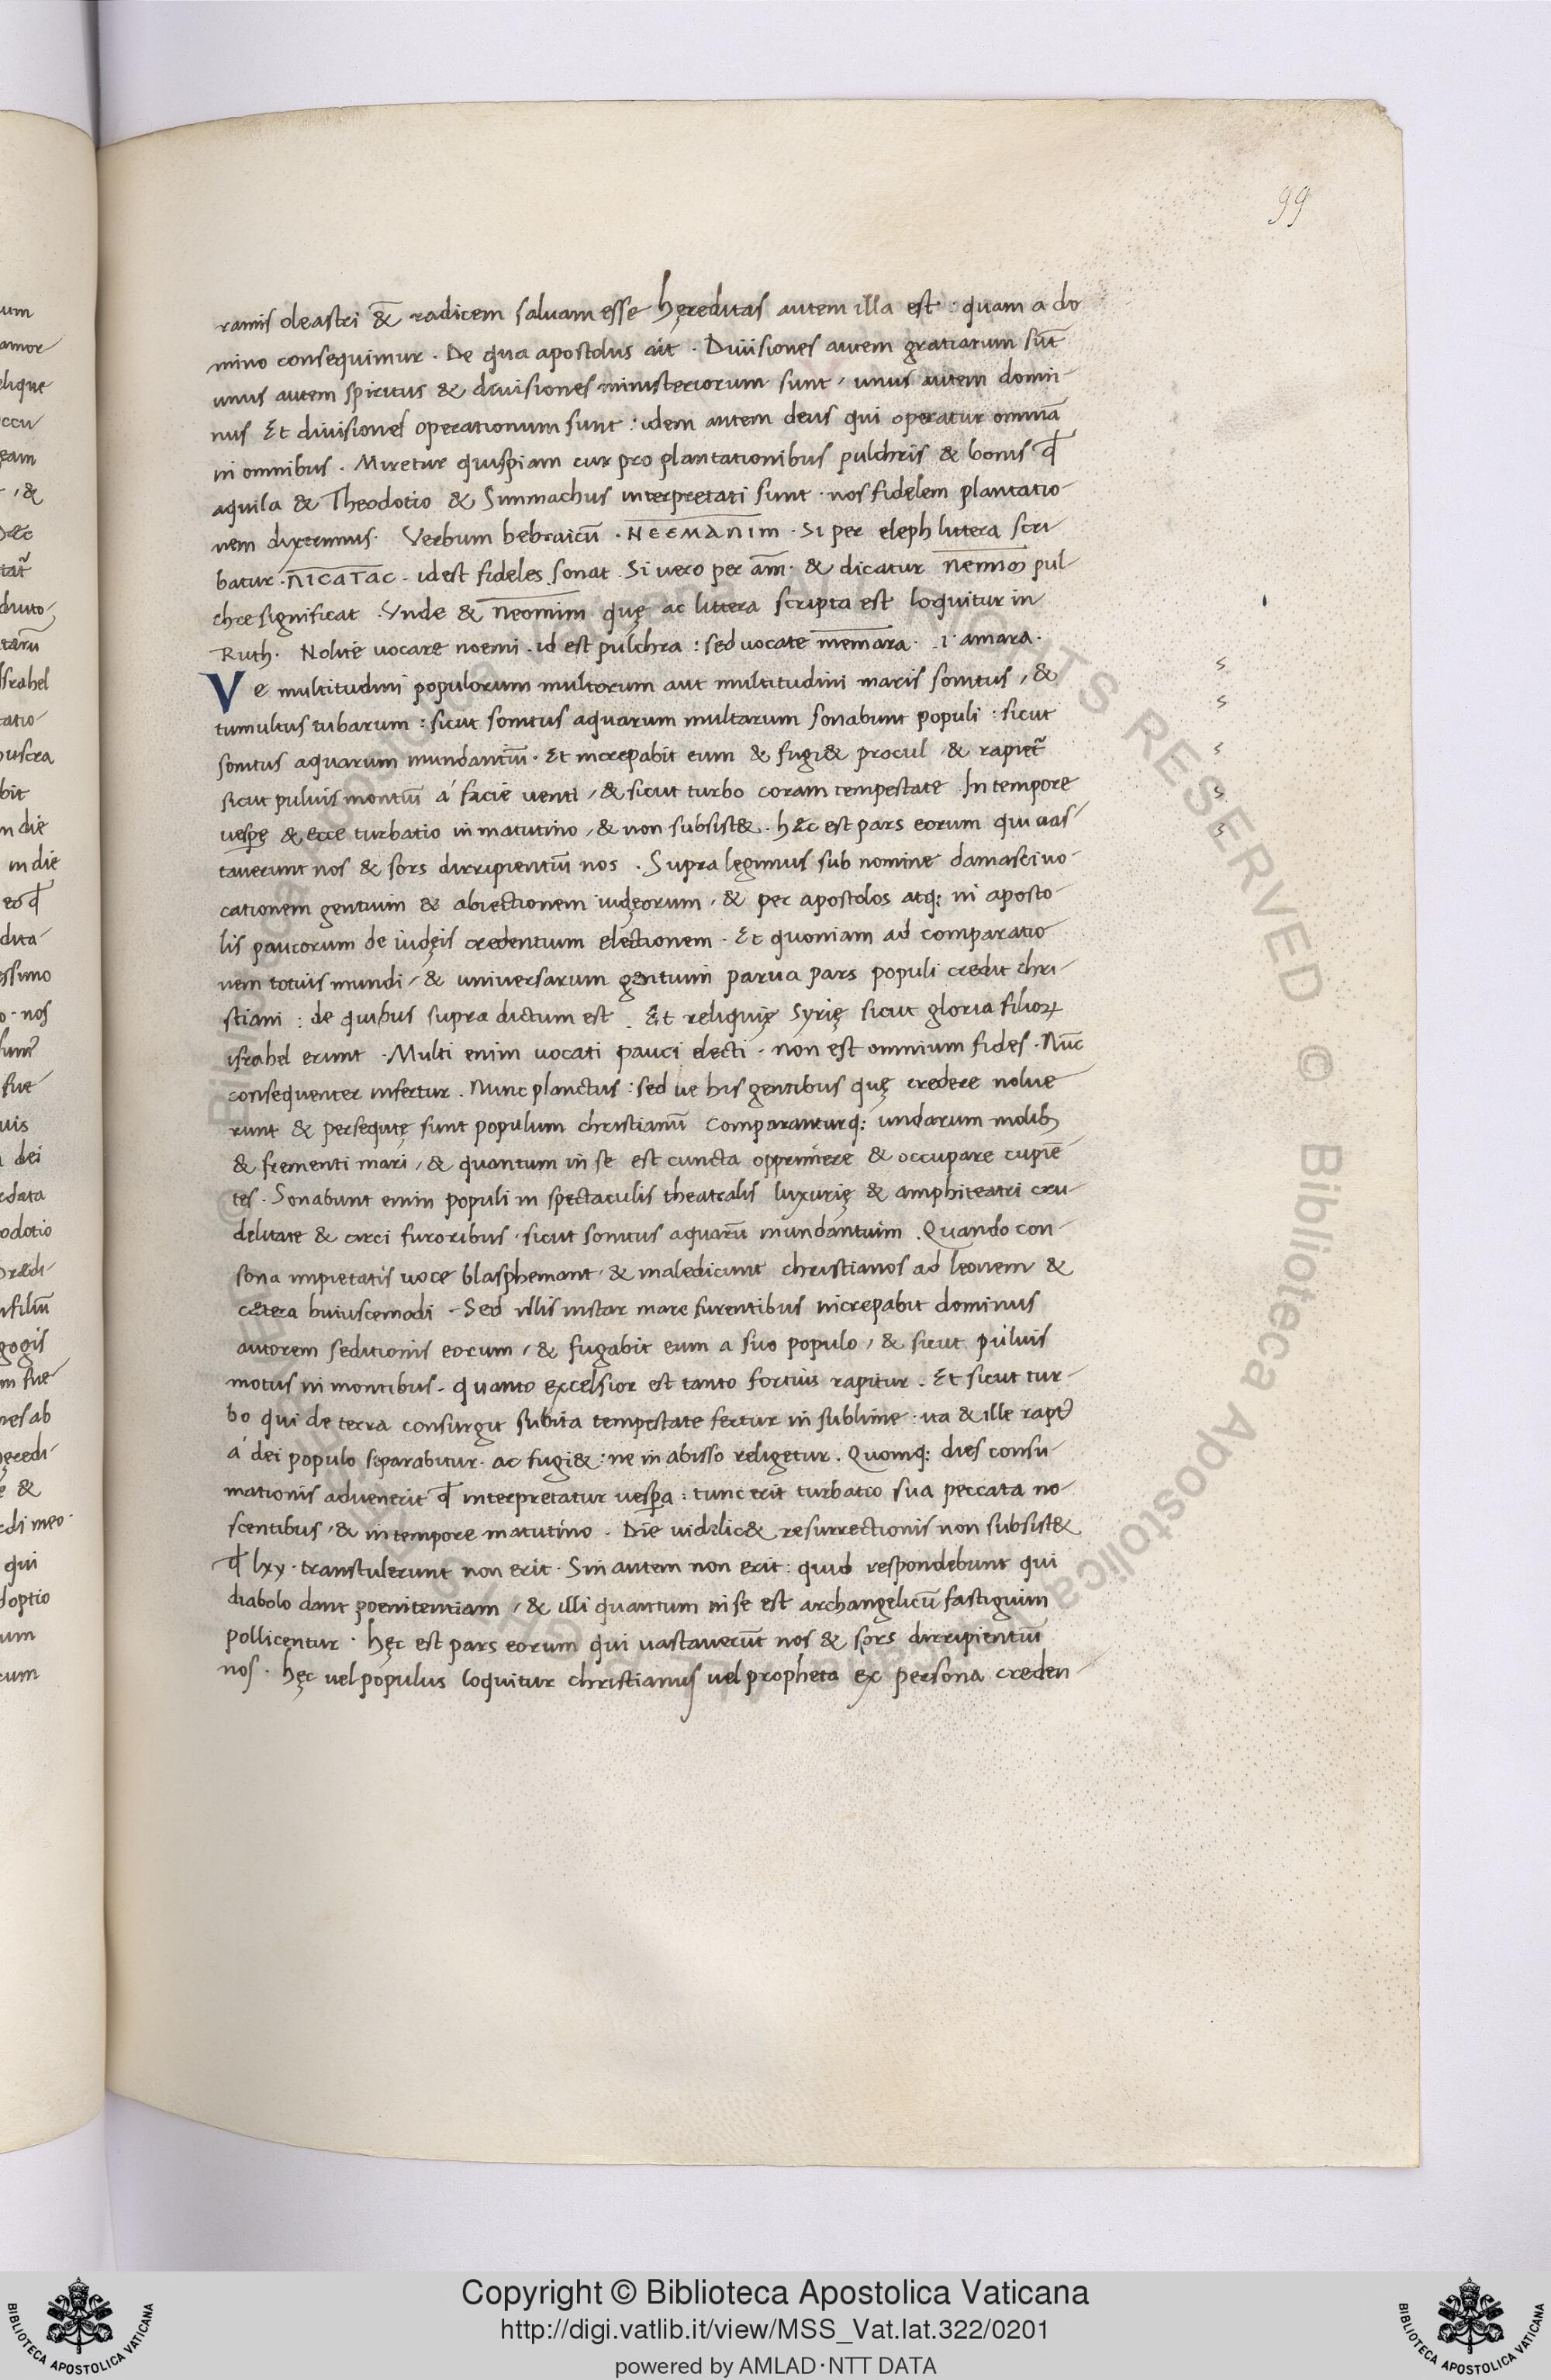 99
ramis oleastri &̄ radicem saluam esse hęreditas autem illa est : quam a do
mino consequimur . De qua apostolus ait . Diuisiones autem gratiarum sūt
unus autem spiritus & diuisiones ministeriorum sunt , unus autem domi-
nus Et diuisiones operationum sunt : idem autem deus qui operatur omnia
in omnibus . Miretur quispiam cur pro plantationibus pulchris & bonis qđ
aquila & Theodotio & Simmachus interpretati sunt . nos fidelem plantatio-
nem dixerimus . Verbum hebraicū . NEEMANIM . Si per eleph littera scri-
batur . NICATAC . id est fideles sonat . Si vero per am̄ . & dicatur nemios pul-
chre significat . Vnde & neomim quę ac littera scripta est loquitur in
Ruth . Nolite vocare noemi . id est pulchra : sed vocate memara . i . amara .
Ve multitudini populorum multorum aut multitudini maris sonitus , &
tumultus tubarum : sicut sonitus aquarum multarum sonabunt populi : sicut
sonitus aquarum inundantiū . Et increpabit eum & fugi& procul , & rapiet᷑
sicut puluis montiū á facie venti , & sicut turbo coram tempestate . In tempore
uesꝑę & ecce turbatio in matutino , & non subsist& . hęc est pars eorum qui uas-
tauerunt nos & sors dirripientiū nos . Supra legimus sub nomine damasci uo-
cationem gentium & abiectionem iudęorum , & per apostolos atq; in aposto-
lis paucorum de iudęis credentium electionem . Et quoniam ad comparatio-
nem totius mundi , & universarum gentium parua pars populi credit chri-
stiani : de quibus supra dictum est . Et reliquię Syrię sicut gloria filioꝝ
israhel erunt . Multi enim uocati pauci electi . non est omnium fides . Nūc
consequenter infertur . Nunc planctus : sed ue his gentibus quę credere nolue-
runt & persequtę sunt populum christianū Comparanturq; undarum molib;
& frementi mari , & quantum in se est cuncta opprimere & occupare cupiē
tes . Sonabunt enim populi in spectaculis theatralis luxurię & amphiteatri cru-
delitate & circi furoribus . sicut sonitus aquarū inundantium . Quando con-
sona impietatis uoce blasphemant , & maledicunt christianos ad leonem &
cętera huiuscemodi . Sed illis instar mare furentibus increpabit dominus
autorem seditionis eorum , & fugabit eum a suo populo , & sicut puluis
motus in montibus . quanto excelsior est tanto fortius rapitur . Et sicut tur-
bo qui de terra consurgit subita tempestate fertur in sublime : ita & ille rapt᷑
á dei populo separabitur . ac fugi& : ne in abisso religetur . Quomq; dies consu-
mationis advenerit qđ interpretatur uesꝑa : tunc erit turbatio sua peccata no-
scentibus , & in tempore matutino . Die uidelic& resurrectionis non subsist&
qđ lxx . transtulerunt non erit . Sin autem non erit : quid respondebunt qui
diabolo dant poenitentiam , & illi quantum in se est archangelicū fastigium
pollicentur . hęc est pars eorum qui uastauerūt nos & sors dirripientiū
nos . hęc uel populus loquitur christianus uel propheta ex persona creden-
Copyright © Biblioteca Apostolica Vaticana
http://digi.vatlib.it/view/MSS_Vat.lat.322/0201
powered by AMLAD·NTT DATA